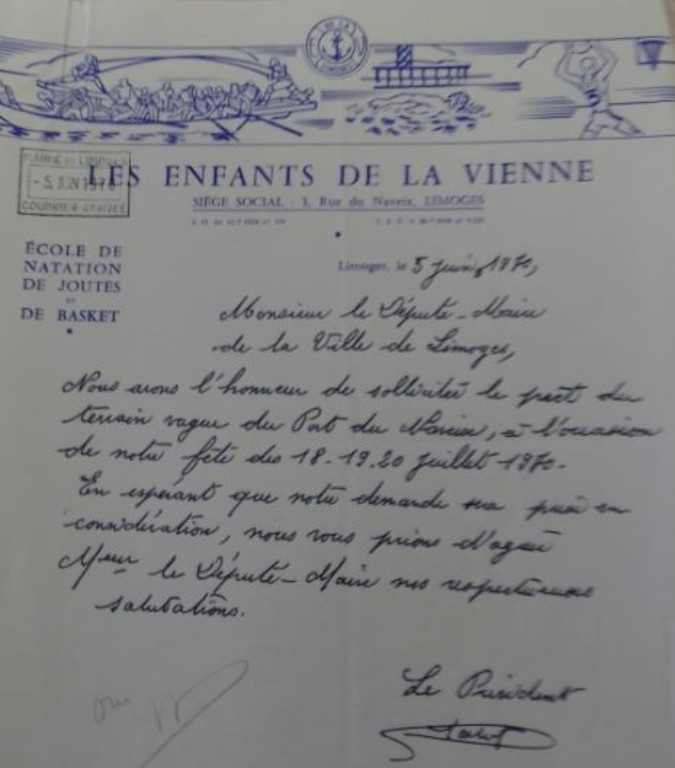 LIMOGES
MAIRIE DE LIMOGES
-5 JUN 1970
COURRIER ARRIVÉE
LES ENFANTS DE LA VIENNE
SIÈGE SOCIAL : 3, Rue du Naveix, LIMOGES
ÉCOLE DE
NATATION
DE JOUTES
ET
DE BASKET
Limoges, le 5 juin 1970,
Monsieur le Député-Maire
de la Ville de Limoges,
Nous avons l'honneur de solliciter le prêt du
terrain vague du Port du Naveix, à l'occasion
de notre fête des 18-19.20 juillet 1970.
En espérant que notre demande sera prise en
considération, nous vous prions d'agréer
Mneur le Député-Maire nos respectueuses
salutations.
Le Président
oui